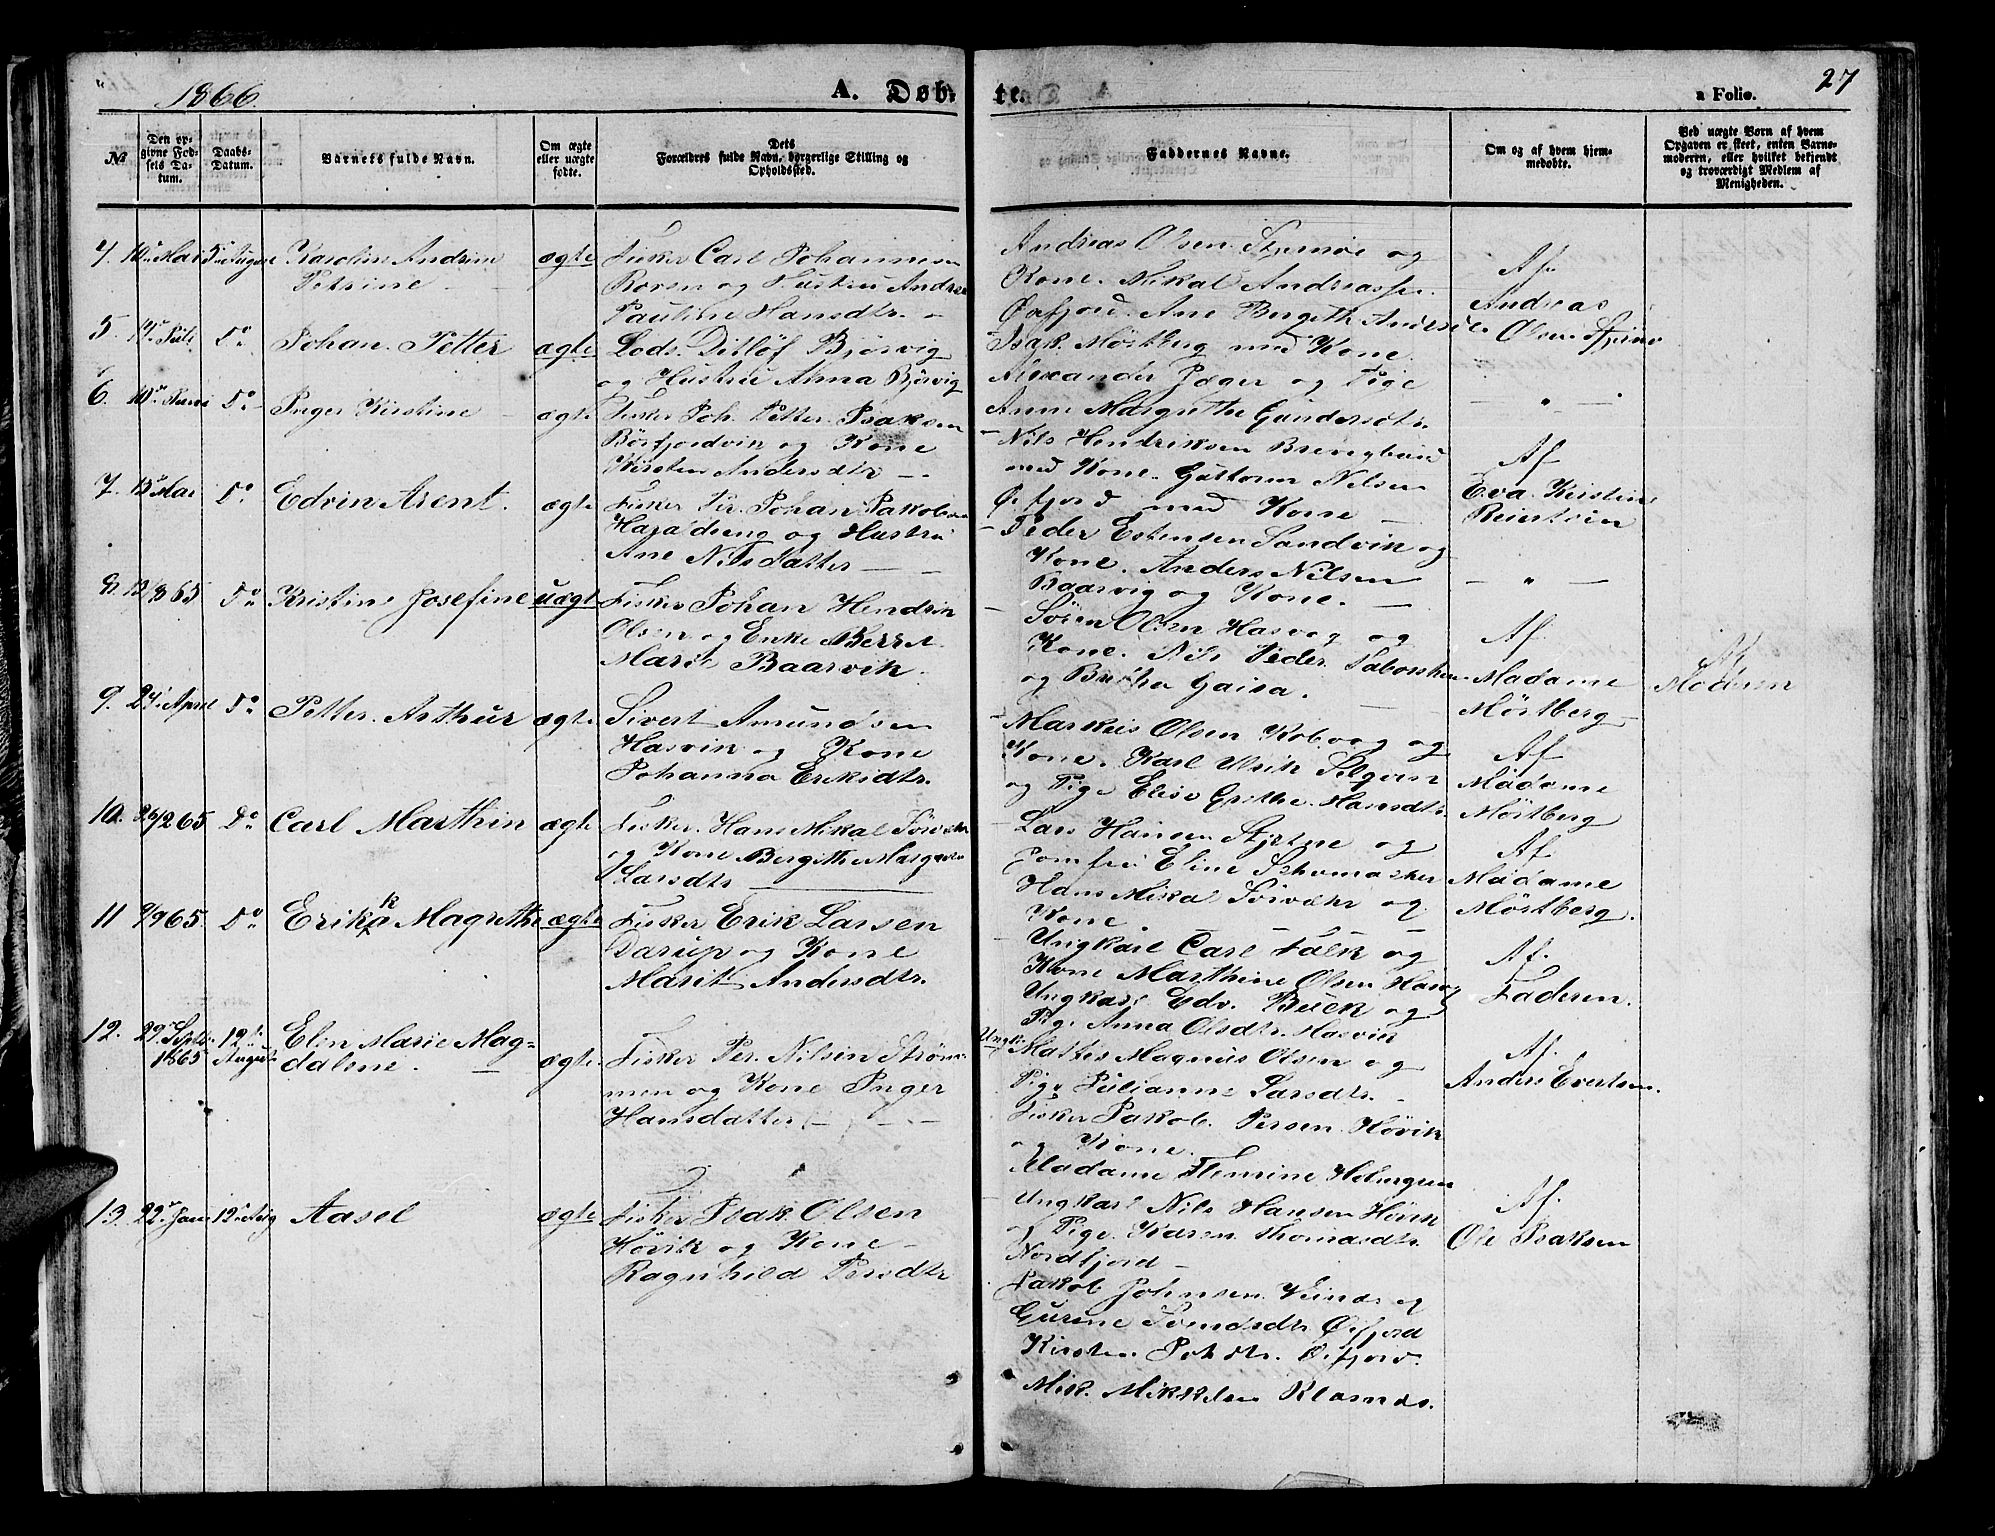 1866.
A. Døb-
te.
a Folio.
27
№
Den op-
givne Fød-
sels Da-
tum.
Daabs-
Datum.
Barnets fulde Navn.
Om ægte
eller uægte
fødte.
Dets
Forældres fulde Navn, borgerlige Stilling og
Opholdssted.
Faddernes Navne.
Om og af hvem hjem-
medøbte.
Ved uægte Børn af hvem
Opgaven er skeet, enten Barne-
moderen, eller hvilket bekjendt
og troværdigt Medlem af
Menigheden.
4. 10 Mai 5 August Karolin Andrine ægte Fisker Carl Johannesen
Petrine og Hustru Andrea
Pauline Hansdtr.
Andreas Olsen og
Kone. Mikal Andreassen
Øxfjord. Ane Bergith
Af
Andreas
Olsen
5. Do Johan Petter ægte Lods Ditløf Bjørvig
og Hustru Anna Bjørvig
Isak Mørtberg med Kone.
Alexander Jæger og Pige
Anne Margrethe Gundersdtr.
— " —
6. 10 Juni Do Inger Kirstine ægte Fisker Joh. Petter Isaksen
Børfjordvik og Kone
Kirsten Andersdtr
Nils Hendriksen
med Kone. Guttorm Nilsen
Øxfjord med Kone
Af
Eva Kristine
Reiersen
7. 13 Mai Do Edvin Arent. ægte Fisker Per Johan Jakobsen
og Hustru
Ane Nilsdatter
Peder Estensen Sandvik og
Kone. Anders Nilsen
Baarvig og Kone.
— " —
8. 13/8 65 Do Kristine Josefine uægte Fisker Johan Hendrik
Olsen og Enke Berrit
Marie Baarvik.
Sören Olsen Hasvag og
Kone. Nils Peder
og Gaisa.
Af
Madame
Mørtberg
Af
Moderen
9. 24 April Do Petter Arthur ægte Sivert Amundsen
Hasvik og Kone
Johanna Eriksdtr.
Markus Olsen Kobvog og
Kone. Karl Ulrik
og Pige Elise Grethe Hansdtr.
Af
Madame
Mørtberg
10. 26/2 65 Do Carl Marthin ægte Fisker Hans Mikal Sörvær
og Kone Bergithe Margrete
Larsdtr
Lars Hansen Stjerne og
Jomfru Eline Schomacker
Hans Mikal Sörvær og
Kone
Af
Madame
Mørtberg.
11 9/9 65. Do Erika Magrethe ægte Fisker Erik Larsen
Darup og Kone
Marit Andersdtr.
Ungkarl Carl Falck og
Kone Marthine Olsen Hasvag
Ungkarl Edv. Buck og
Pige Anna Olsdtr. Hasvik
Af.
Faderen.
12. 29. Septbr 1865 12te August Elen Marie Mag-
dalene. ægte Fisker Per. Nilsen Strøm-
men og Kone Inger
Hansdatter
Ungk. Mattes Magnus Olsen og
Pige Julianne Larsdtr.
Fisker Jakob Persen Hövik
og Kone.
Madame Flemine Holmgren
Af.
Anders Evertsen.
13. 22. Jan 12 Aug Aasel ægte Fisker Isak Olsen
Hövik og Kone
Ragnhild Persdtr
Ungkarl Nils Hansen Hövik
og Pige Karen Thomasdtr
Nordfjord
Jakob Johnsen og
Gurine Øxfjord
Kirsten Øxfjord.
Mik. Mikkelsen
Af.
Ole Isaksen